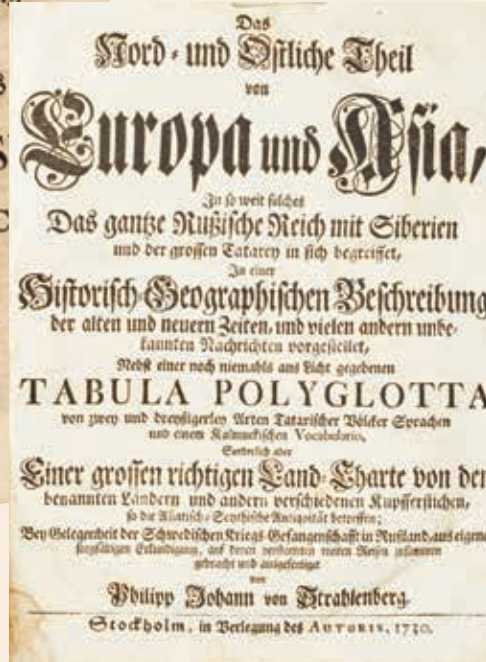 Das
Nord- und Östliche Theil
von
Europa und Asia,
In so weit solches
Das gantze Rußische Reich mit Siberien
und der grossen Tatarey in sich begreiffet,
In einer
Historisch-Geographischen Beschreibung
der alten und neuern Zeiten, und vielen andern unbe-
kannten Nachrichten vorgestellet,
Nebst einer noch niemahls ans Licht gegebenen
TABULA POLYGLOTTA
von zwey und dreyßigerley Arten Tatarischer Völcker Sprachen
und einem Kalmuckischen Vocabulario,
Sonderlich aber
Einer grossen richtigen Land-Charte von den
benannten Ländern und andern verschiedenen Kupfferstichen,
so die Asiatisch-Scythische Antiqvität betreffen;
Bey Gelegenheit der Schwedischen Kriegs-Gefangenschafft in Rußland, aus eigene
sorgfältigen Erkundigung, auf denen verstatteten weiten Reisen zusammen
gebracht und ausgefertiget
von
Philipp Johann von Strahlenberg.
Stockholm, in Verlegung des AUTORIS, 1730.